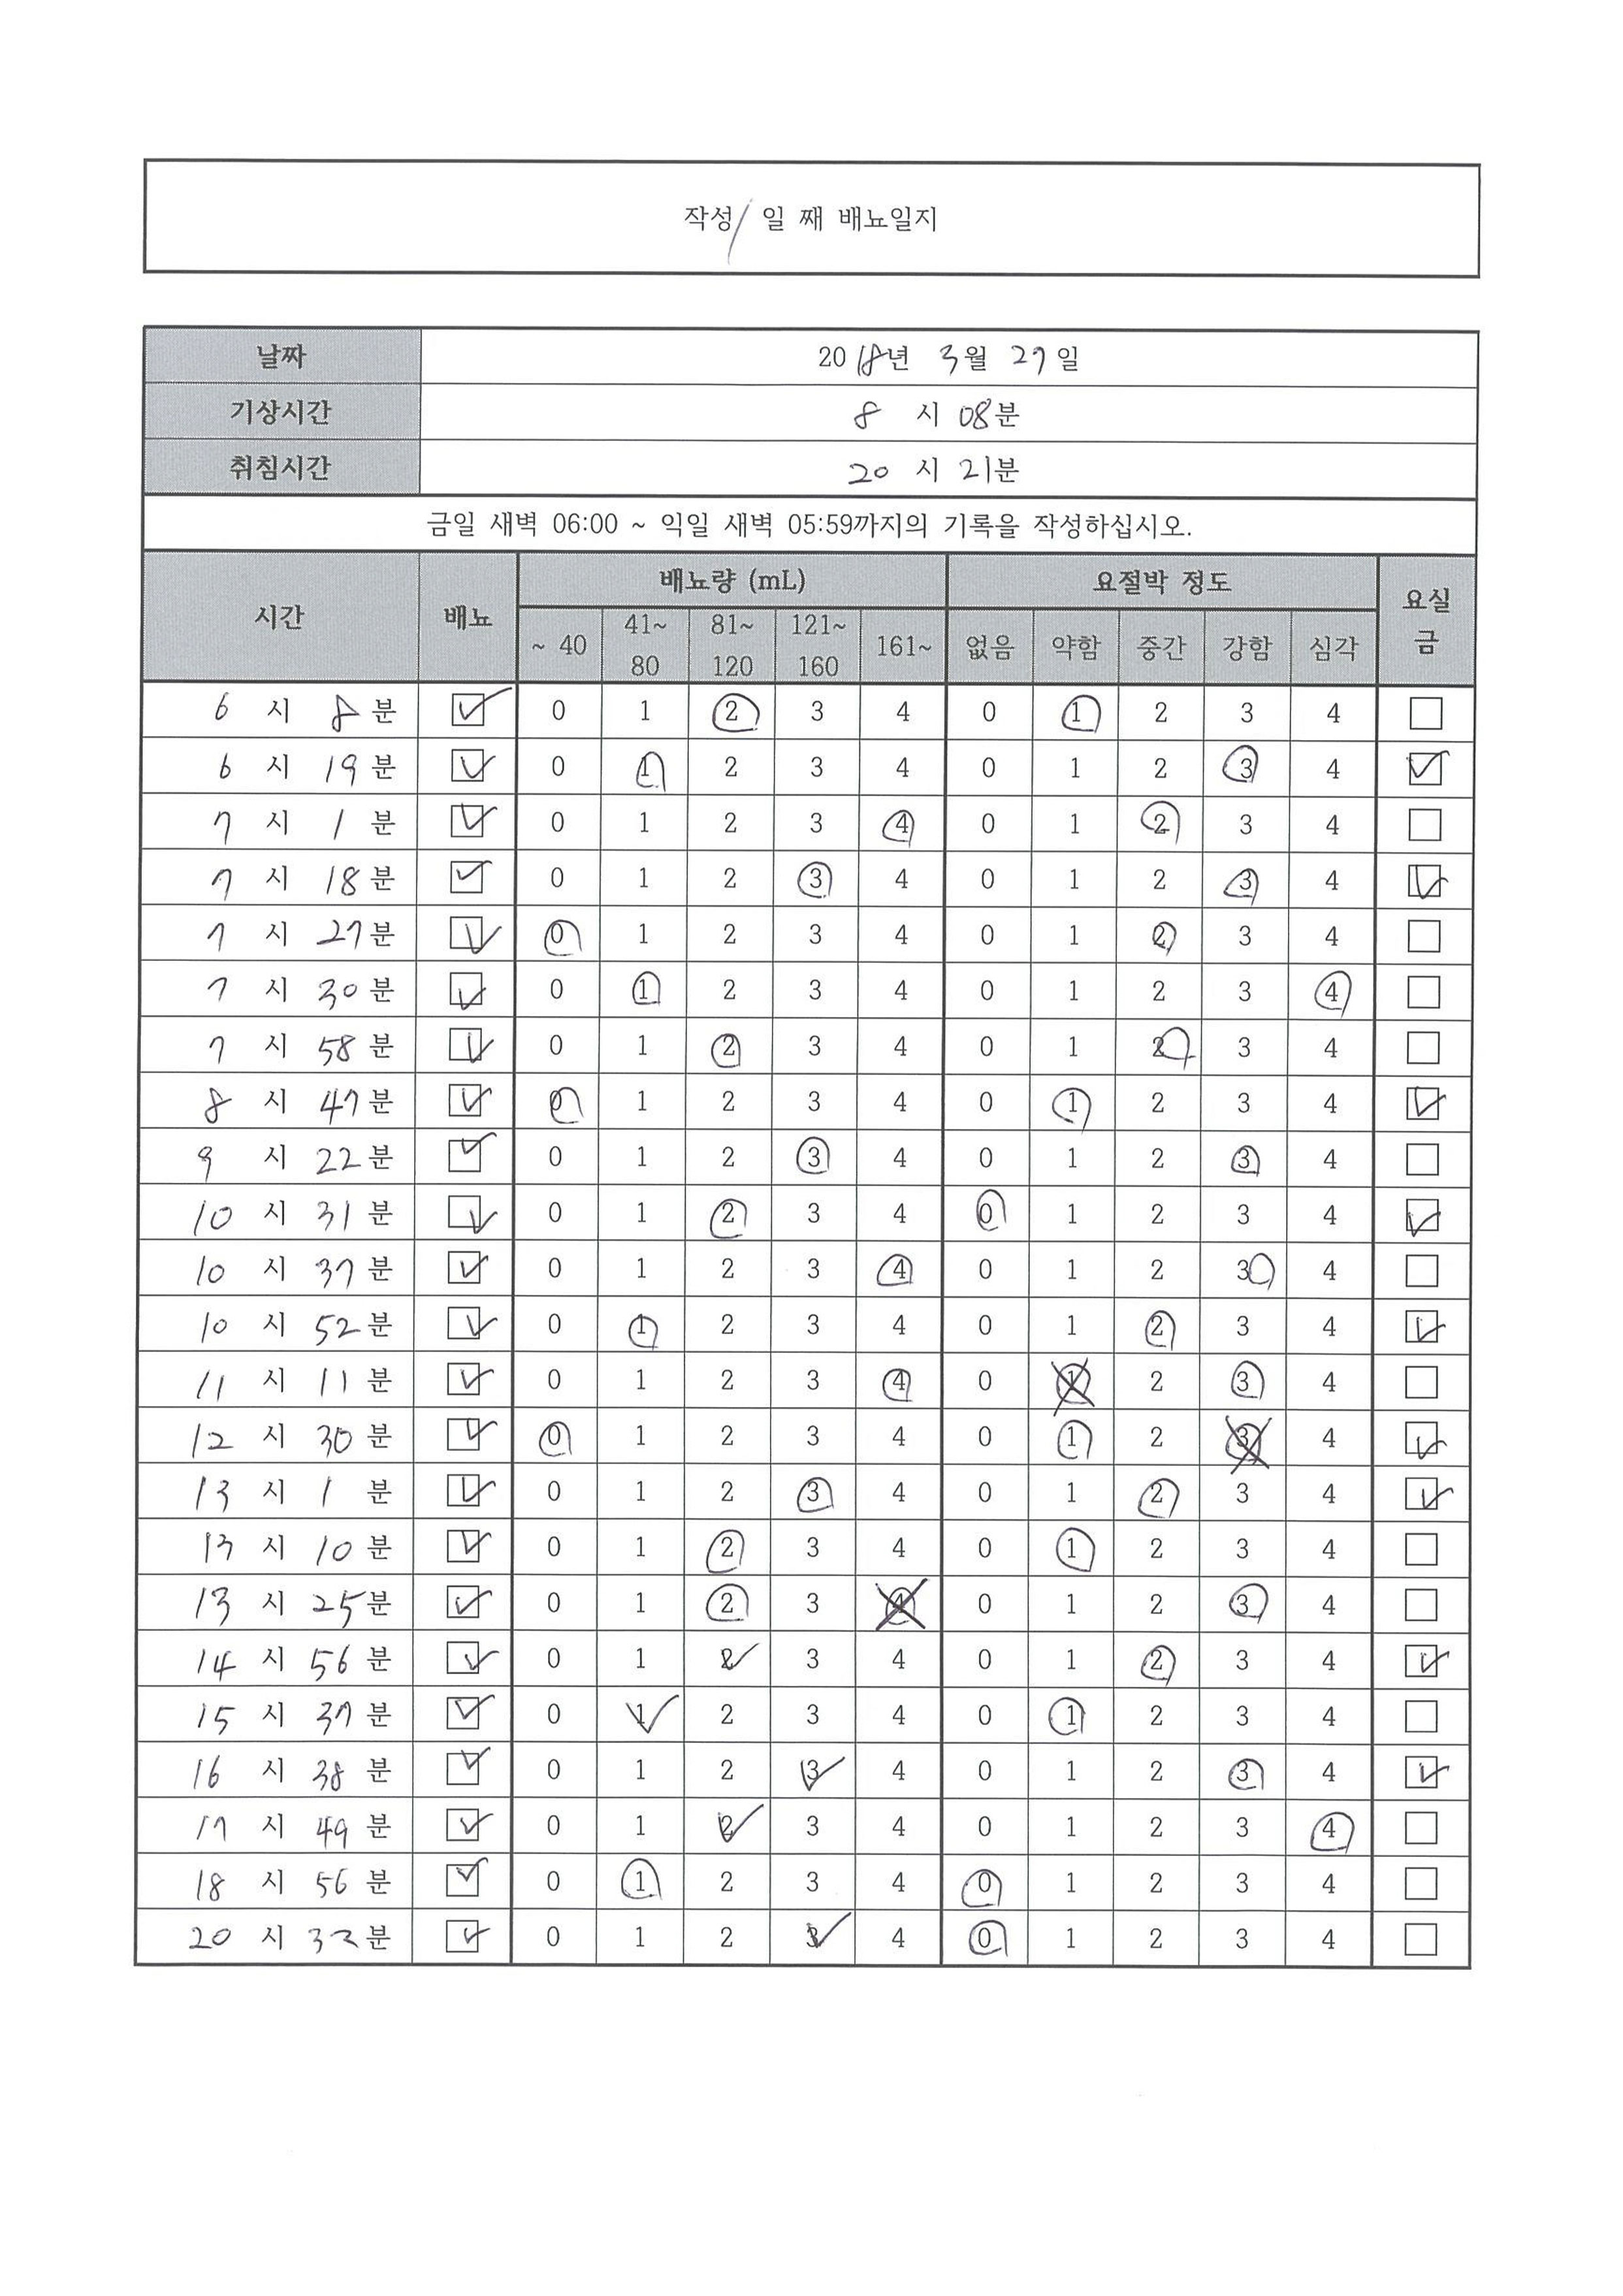 작성 1 일 째 배뇨일지
날짜 2018년 3월 27일
기상시간 8 시 08분
취침시간 20 시 21분
금일 새벽 06:00 ~ 익일 새벽 05:59까지의 기록을 작성하십시오.
시간 배뇨 배뇨량 (mL) 요절박 정도 요실금
~ 40 41~80 81~120 121~160 161~ 없음 약함 중간 강함 심각
6 시 8 분 0 1 2 3 4 0 1 2 3 4
6 시 19 분 0 1 2 3 4 0 1 2 3 4
7 시 1 분 0 1 2 3 4 0 1 2 3 4
7 시 18 분 0 1 2 3 4 0 1 2 3 4
7 시 27 분 0 1 2 3 4 0 1 2 3 4
7 시 30 분 0 1 2 3 4 0 1 2 3 4
7 시 58 분 0 1 2 3 4 0 1 2 3 4
8 시 47 분 0 1 2 3 4 0 1 2 3 4
9 시 22 분 0 1 2 3 4 0 1 2 3 4
10 시 31 분 0 1 2 3 4 0 1 2 3 4
10 시 37 분 0 1 2 3 4 0 1 2 3 4
10 시 52 분 0 1 2 3 4 0 1 2 3 4
11 시 11 분 0 1 2 3 4 0 1 2 3 4
12 시 30 분 0 1 2 3 4 0 1 2 3 4
13 시 1 분 0 1 2 3 4 0 1 2 3 4
13 시 10 분 0 1 2 3 4 0 1 2 3 4
13 시 25 분 0 1 2 3 4 0 1 2 3 4
14 시 56 분 0 1 2 3 4 0 1 2 3 4
15 시 37 분 0 1 2 3 4 0 1 2 3 4
16 시 38 분 0 1 2 3 4 0 1 2 3 4
17 시 49 분 0 1 2 3 4 0 1 2 3 4
18 시 56 분 0 1 2 3 4 0 1 2 3 4
20 시 분 0 1 2 3 4 0 1 2 3 4